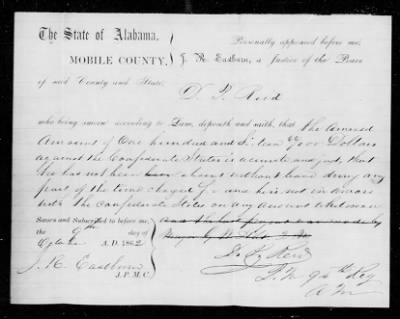 The State of Alabama,
MOBILE COUNTY,
Personally appeared before me,
J. R. Eastburn, a Justice of the Peace
of said County and State,
D. P. Reid
who being sworn according to Law, deposeth and saith, that the annexed
Amount of One hundred and Sixteen Dollars
against the Confederate States is accurate and just, that
he has not been absent without leave during any
part of the time charged for and he is not in Arrears
with the Confederate States on any Amount whatsoever
Sworn and Subscribed to before me,
the 9th day of
A.D. 1862
J. R. Eastburn
J. P. M. C.
D. P. Reid
9th Reg